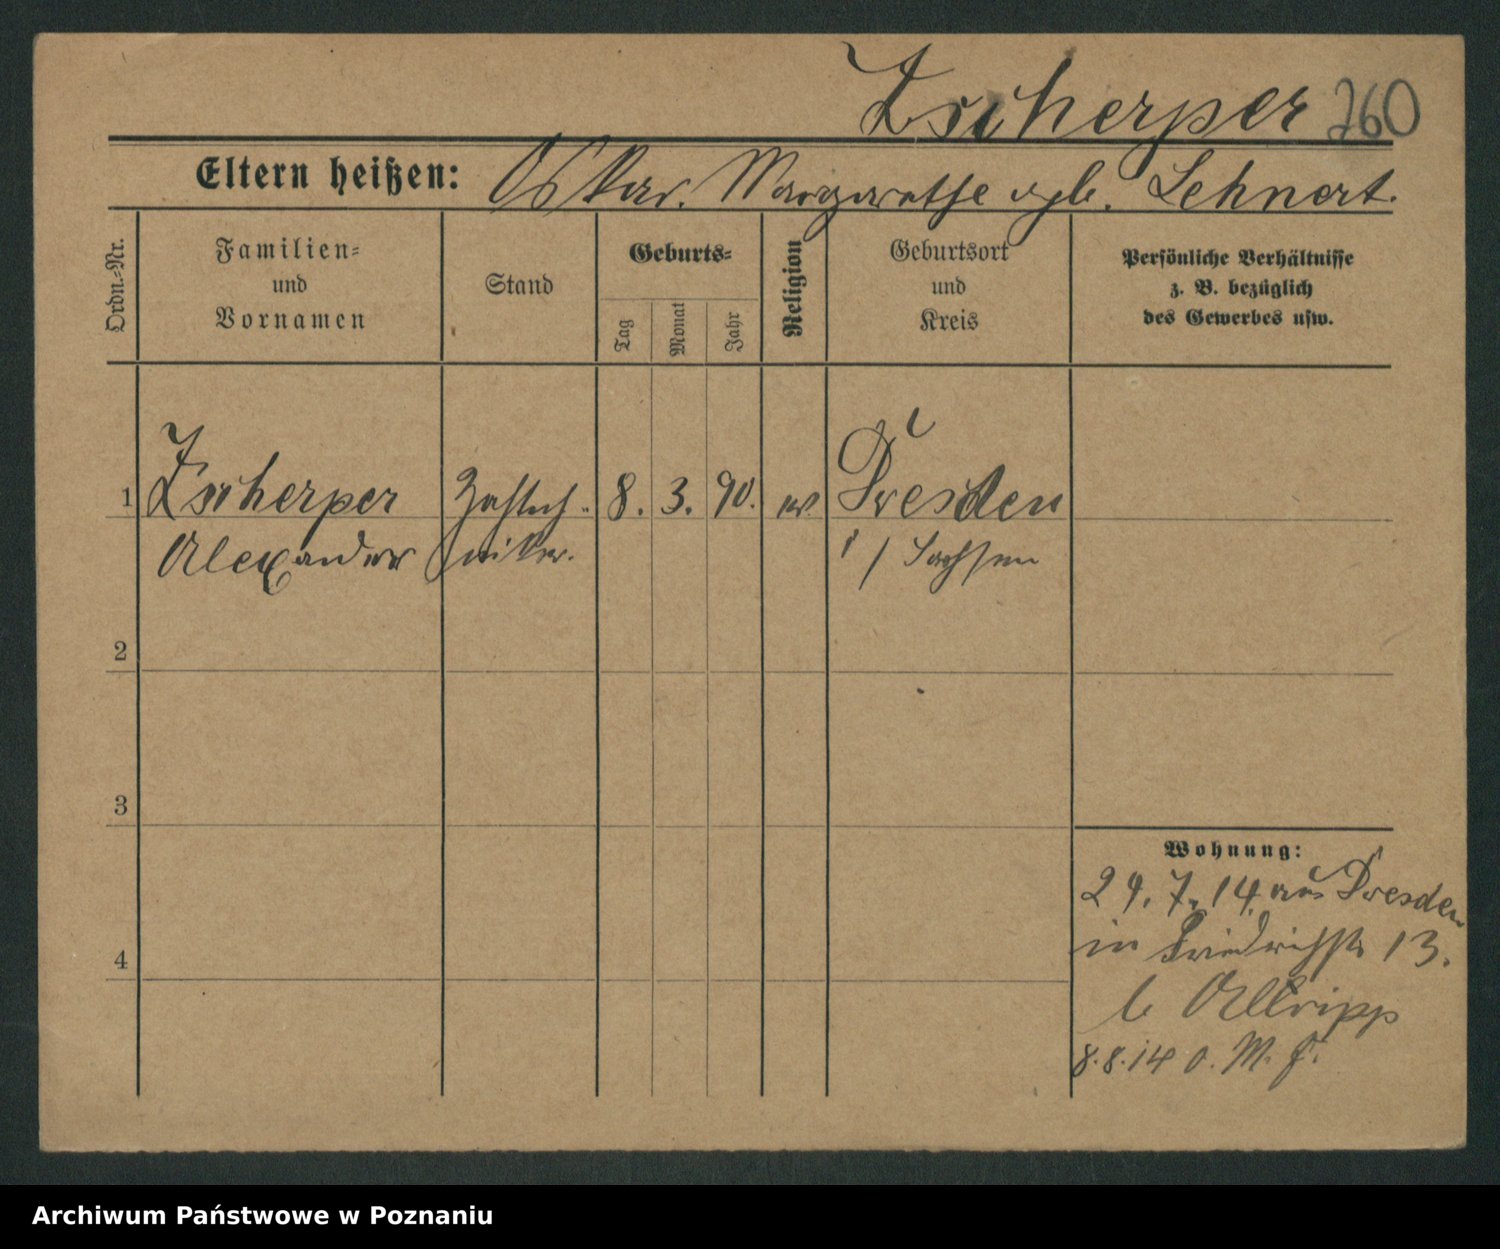 Zscherper 260
Eltern heißen: Oskar. Margarethe geb. Lehnert.
Ordn.=Nr.
Familien=
und
Vornamen
Stand
Geburts=
Tag
Monat
Jahr
Religion
Geburtsort
und
Kreis
Persönliche Verhältnisse
z. B. bezüglich
des Gewerbes usw.
1 Zscherper Zahntech- 8. 3. 90. ev. Dresden
Alexander niker. i / Sachsen
2
3
4
Wohnung:
29. 7. 14 aus Dresden
in Friedrichstr 13.
b
8.8.14 o. M. F.
Archiwum Państwowe w Poznaniu